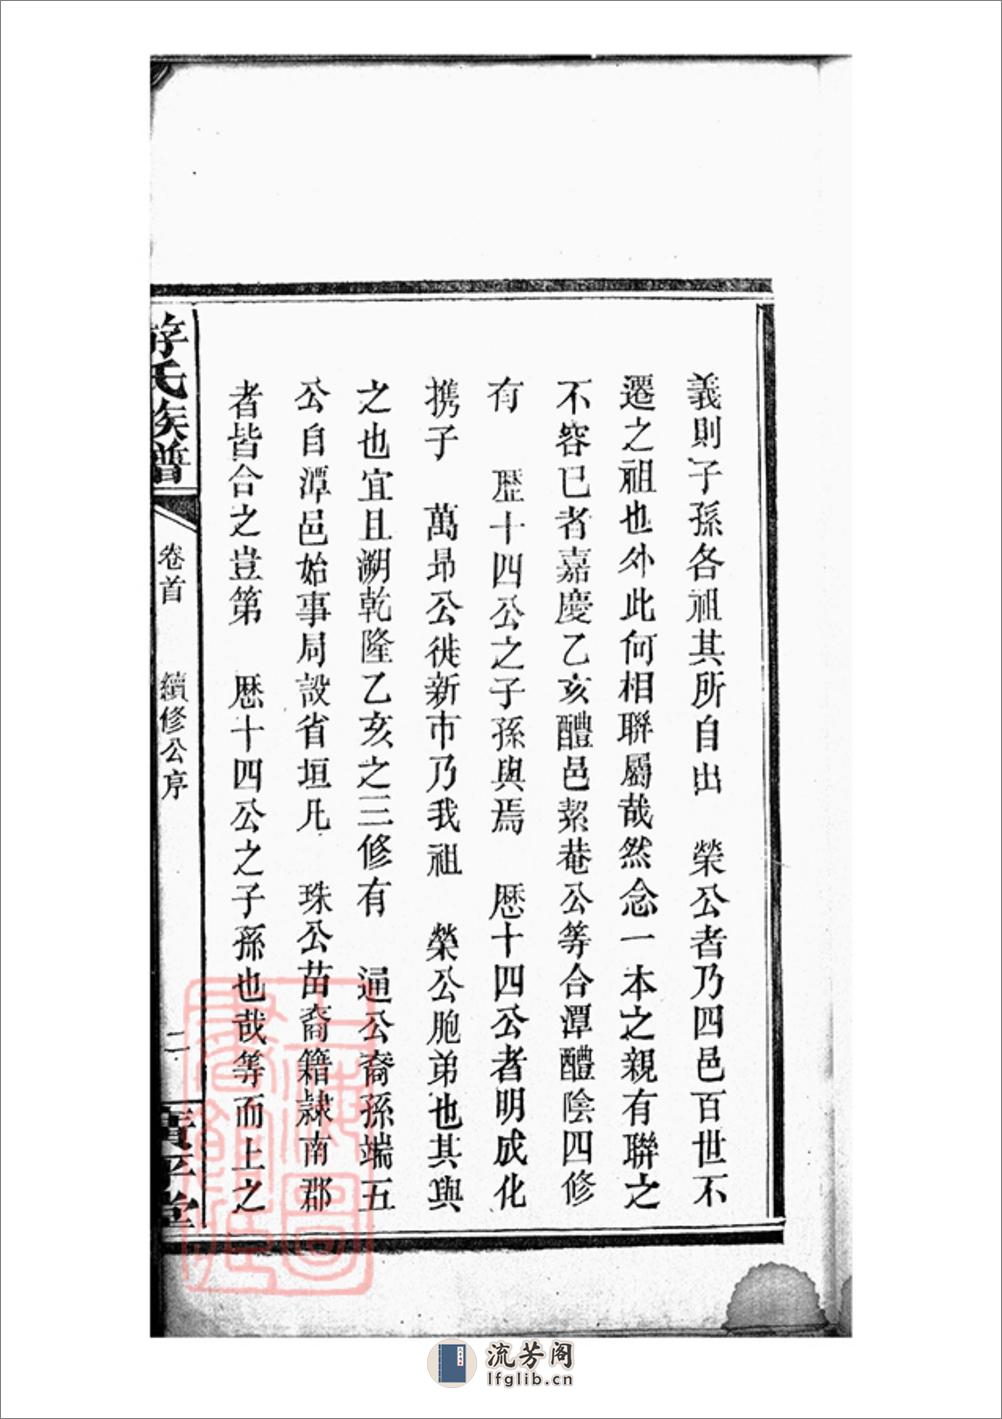 義則子孫各祖其所自出　榮公者乃四邑百世不
遷之祖也外此何相聯屬哉然念一本之親有聯之
不容已者嘉慶乙亥醴邑絜菴公等合潭醴陰四修
有　歷十四公之子孫與焉　歷十四公者明成化
携子　萬昻公徙新市乃我祖　榮公胞弟也其與
之也宜且溯乾隆乙亥之三修有　通公裔孫端五
公自潭邑始事局設省垣凡　珠公苗裔籍隷南郡
者皆合之豈第　歷十四公之子孫也哉等而上之
氏族譜
卷首
續修公序
二
上海圖書館藏
流芳阁
lfglib.cn